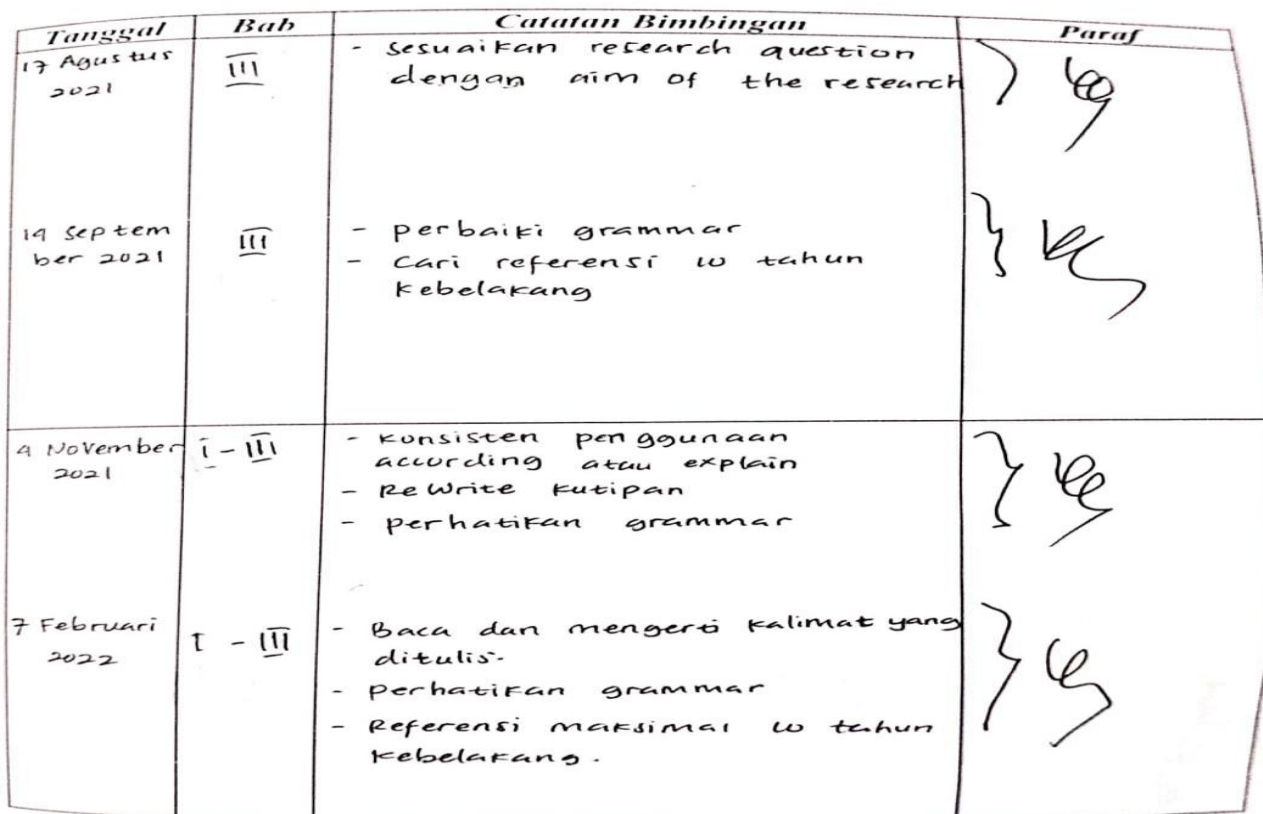 Tanggal Bab Catatan Bimbingan Paraf
17 Agustus III - Sesuaikan research question
2021 dengan aim of the research
19 Septem III - perbaiki grammar
ber 2021 - Cari referensi 10 tahun
kebelakang
9 November I - III - Konsisten penggunaan
2021 according atau explain
- ReWrite kutipan
- perhatikan grammar
7 Februari I - III - Baca dan mengerti kalimat yang
2022 ditulis.
- perhatikan grammar
- Referensi maksimal 10 tahun
kebelakang.